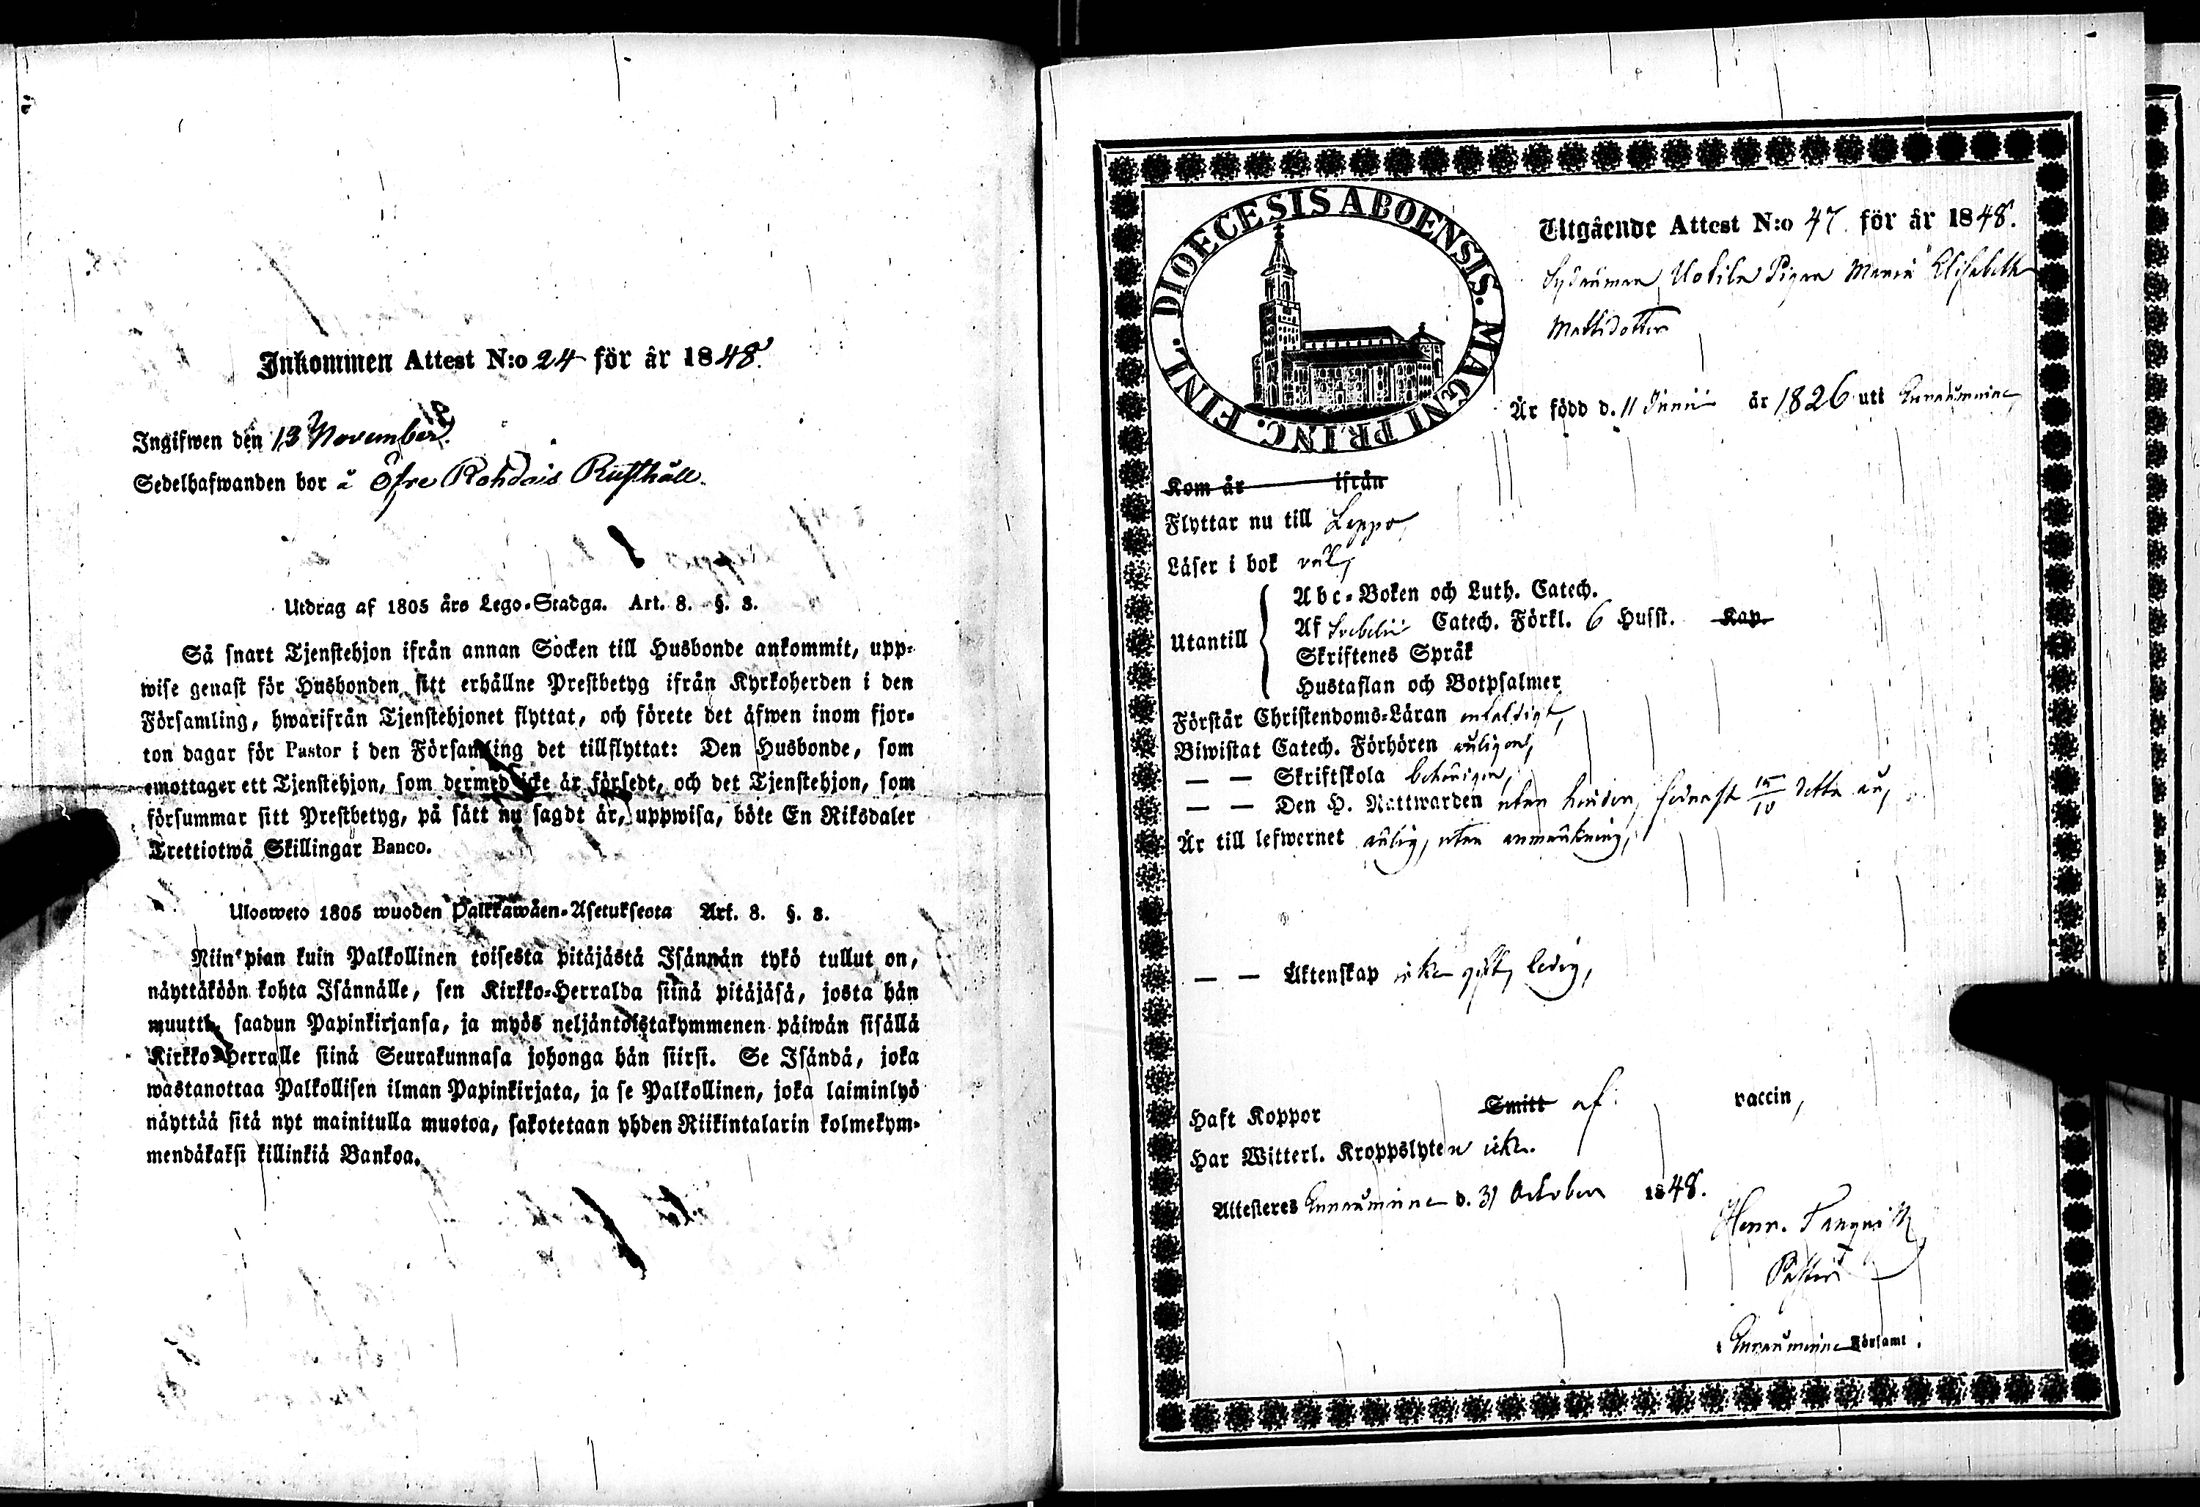 Inkommen Attest N:o 24 för år 1848.
Ingifwen den 13 November.
Sedelhafwanden bor å Öfre Rohdais Rusthåll.
Utdrag af 1805 års Lego-Stadga. Art. 8. §. 3.
Så snart Tjenstehjon ifrån annan Socken till Husbonde ankommit, upp-
wise genast för Husbonden sitt erhållne Prestbetyg ifrån Kyrkoherden i den
Församling, hwarifrån Tjenstehjonet flyttat, och förete det äfwen inom fjor-
ton dagar för Pastor i den Församling det tillflyttat: Den Husbonde, som
emottager ett Tjenstehjon, som dermed icke är försedt, och det Tjenstehjon, som
försummar sitt Prestbetyg, på sätt nu sagdt är, uppwisa, böte En Riksdaler
Trettiotwå Skillingar Banco.
Ulosweto 1805 wuoden Palkkawäen-Asetuksesta Art. 8. §. 3.
Niin pian kuin Palkollinen toisesta pitäjästä Isännän tykö tullut on,
näyttäköön kohta Isännälle, sen Kirkko-Herralda siinä pitäjäsä, josta hän
muutti, saadun Papinkirjansa, ja myös neljäntoistakymmenen päiwän sisällä
Kirkko-Herralle siinä Seurakunnasa johonga hän siirsi. Se Isändä, joka
wastanottaa Palkollisen ilman Papinkirjata, ja se Palkollinen, joka laiminlyö
näyttää sitä nyt mainitulla muotoa, sakotetaan yhden Riikintalarin kolmekym-
mendäkaksi killinkiä Bankoa.
DIOECESIS ABOENSIS. MAGNI PRINC. FINL.
Utgående Attest N:o 47 för år 1848.
Uotila Pigan Maria Elisabeth
Mattsdotter
Är född d. 11 Junii år 1826 utt
Kom år ifrån
Flyttar nu till Loppo
Läser i bok väl,
Utantill
Abc-Boken och Luth. Catech.
Af Svebelii Catech. Förkl. 6 Husst. Kap.
Skriftenes Språk
Hustaflan och Botpsalmer
Förstår Christendoms-Läran enfaldigt,
Biwistat Catech. Förhören årligen,
— — Skriftskola behörigen,
— — Den H. Nattwarden utan hinder, sednast 15/10 detta år,
Är till lefwernet ärlig, utan anmärkning,
— — Äktenskap icke gift, ledig,
Haft Koppor Smitt af vaccin,
Har Witterl. Kroppslyten icke.
Attesteres d. 31 October 1848.
Henr.
Pastor
Församl.